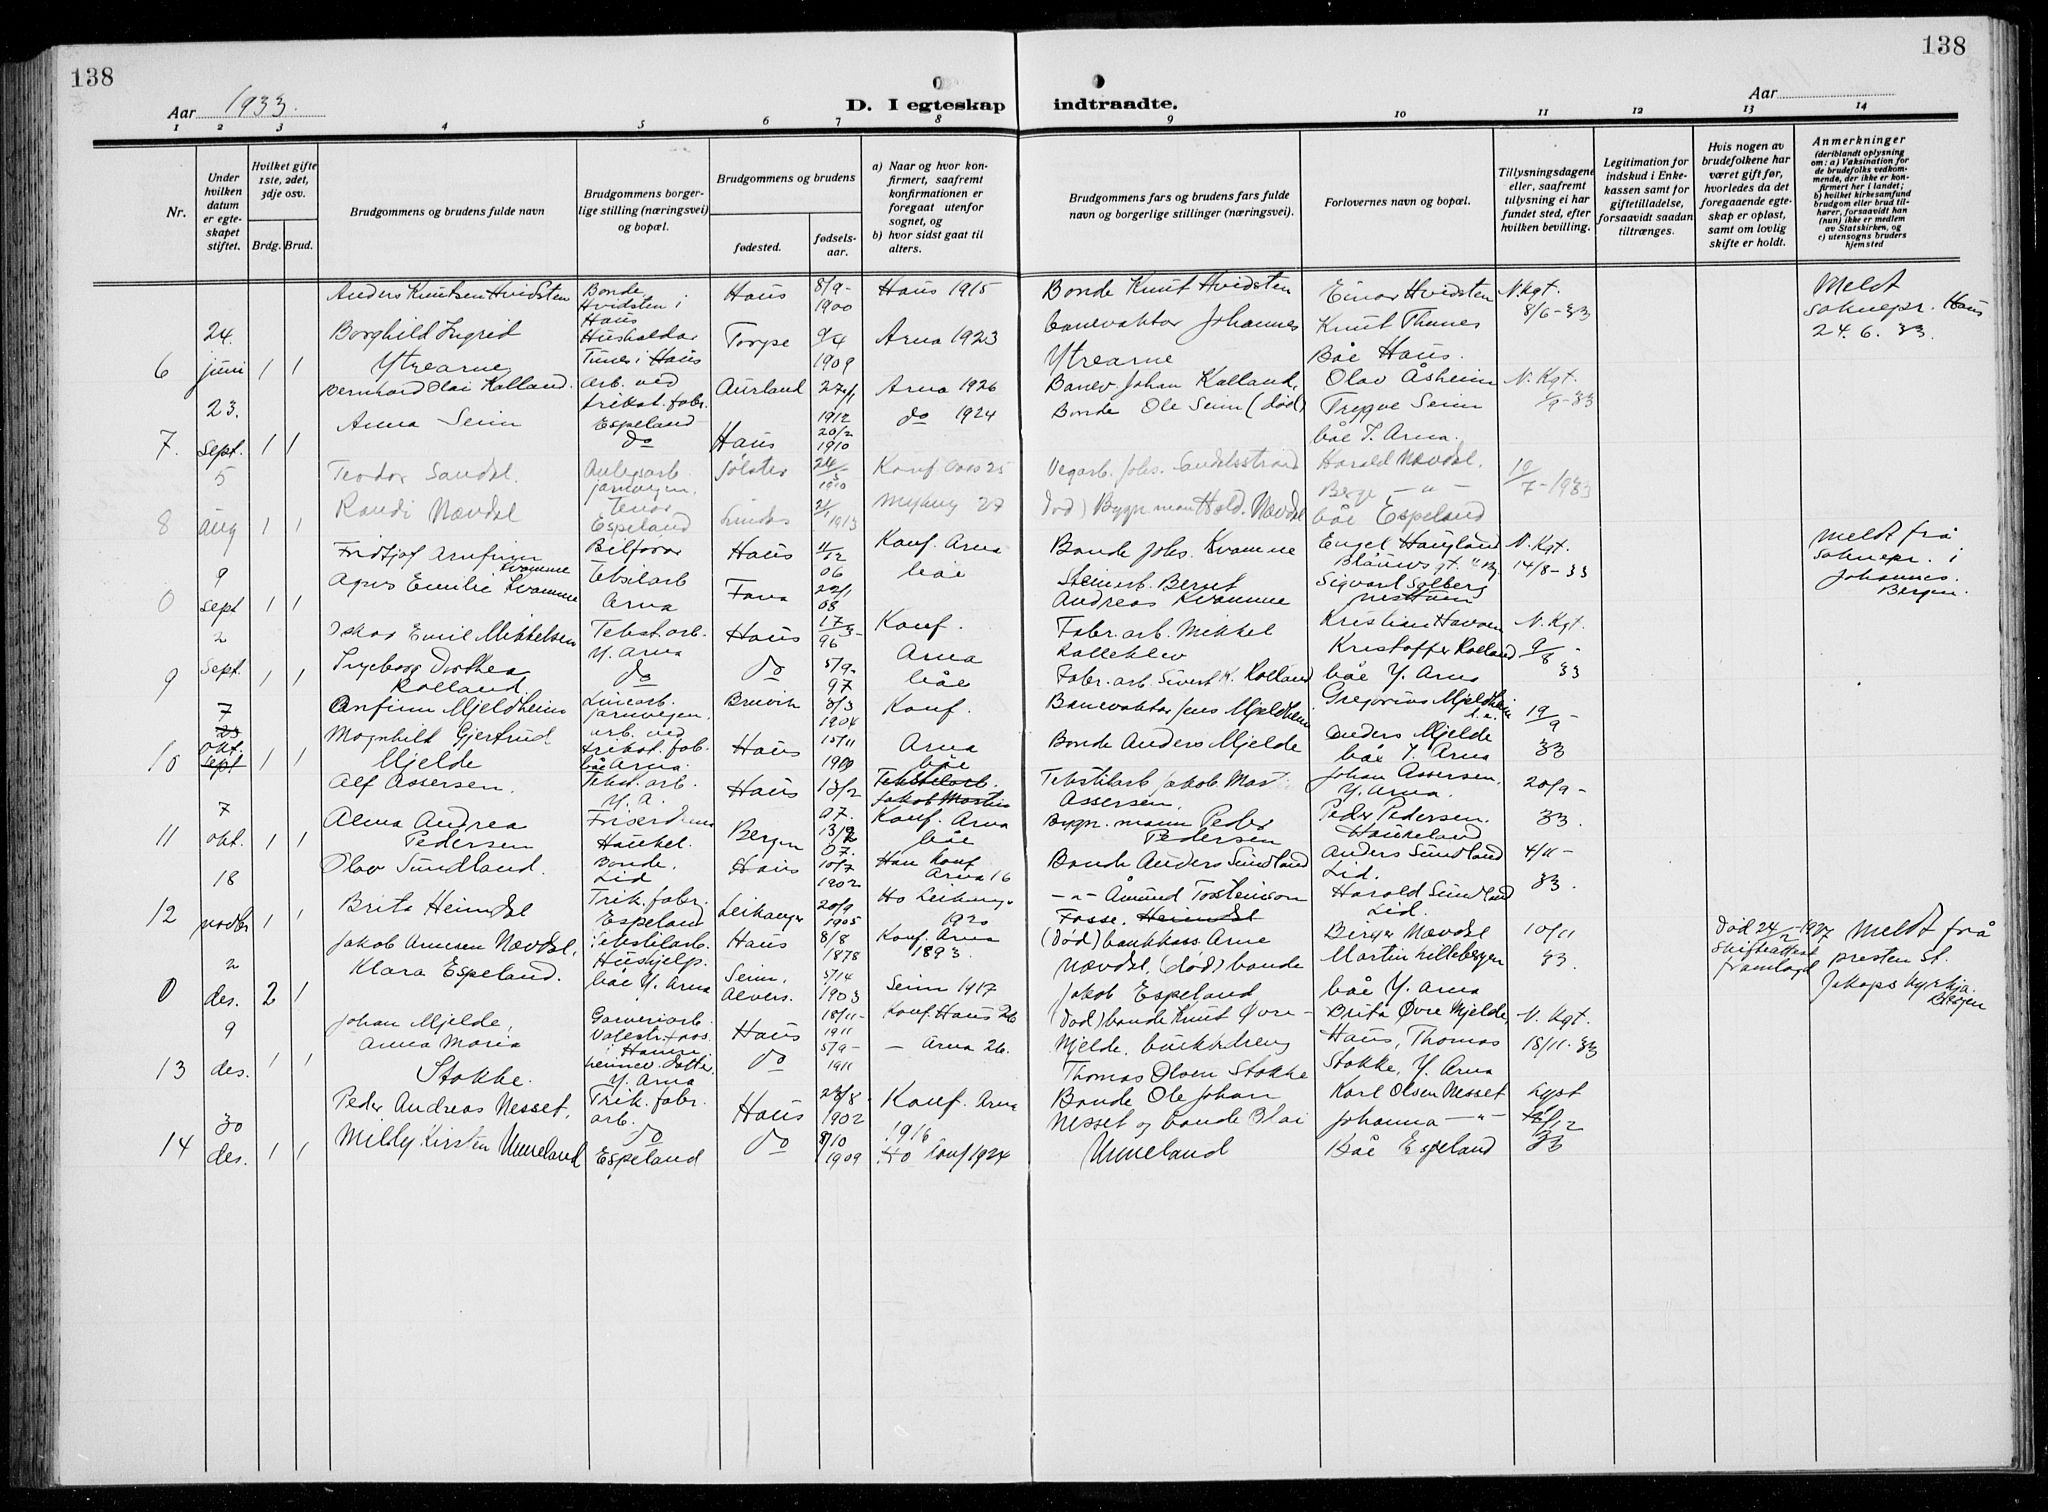 138
138
Aar 1933.
D. I egteskap indtraadte.
Aar
1 2 3 4 5 6 7 8 9 10 11 12 13 14
Nr.
Under hvilken datum er egteskapet stiftet.
Hvilket gifte 1ste, 2det, 3dje osv.
Brdg. Brud.
Brudgommens og brudens fulde navn
Brudgommens borgerlige stilling (næringsvei) og bopæl.
Brudgommens og brudens
fødested.
fødselsaar.
a) Naar og hvor konfirmert, saafremt konfirmationen er foregaat utenfor sognet, og
b) hvor sidst gaat til alters.
Brudgommens fars og brudens fars fulde navn og borgerlige stillinger (næringsvei).
Forlovernes navn og bopæl.
Tillysningsdagene eller, saafremt tillysning ei har fundet sted, efter hvilken bevilling.
Legitimation for indskud i Enkekassen samt for giftetilladelse, forsaavidt saadan tiltrænges.
Hvis nogen av brudefolkene har været gift før, hvorledes da det foregaaende egteskap er opløst, samt om lovlig skifte er holdt.
Anmerkninger
(deriblandt oplysning om: a) Vaksination for de brudefolks vedkommende, der ikke er konfirmert her i landet; b) hvilket kirkesamfund brudgom eller brud tilhører, forsaavidt han (hun) ikke er medlem av Statskirken, og c) utensogns bruders hjemsted
Anders Knutsen Hvidsten Bonde Hvidsten i Haus Haus 8/9-1900 Haus 1915 Bonde Knut Hvidsten Einar Hvidsten N. Kgt. 8/6-33 Meldt soknepr. Haus 24.6.33.
6 24. juni 1 1 Borghild Ingrid Ytrearne Husholdar Tunes i Haus Torpe 9/4 1909 Arna 1923 banevaktar Johannes Ytrearne Knut Thunes Båe Haus.
Bernhard Olai Kalland. arb. ved trikot. fabr. Espeland Aurland 27/1 1912 Arna 1926 Banev. Johan Kalland, Olav Åsheim N. Kgt. 1/9-33
7. 23. Sept. 1 1 Anna Seim do Haus 20/2 1910 do 1924 Bonde Ole Seim (død) Trygve Seim båe Y. Arna.
Teodor Sandal. Anlegsarb. jarnvegen. Jølster 24/3 1910 Konf. 25 Vegarb. Johs. Sandalsstrand Harald Nævdal. 10/7-1933
8 5 aug 1 1 Randi Nævdal Espeland Lindås 2/1 1913 Myking 27 (død) Bygn. man Hald. Nævdal Berge -"- båe Espeland
Fridtjof Arnfinn Kvamme Bilførar Haus 11/12 06 Konf. Arna båe Bonde Johs. Kvamme Engel Haugland N. Kgt. 14/8-33 Meldt frå soknepr. i Johannes. Bergen.
0 9 sept 1 1 Agnes Emilie Kvamme Tekstilarb Arna Fana 22/1 08 Steinarb. Bernt Andreas Kvamme Sigvart Solberg Nesttun
Oskar Emil Mikkelsen Tekst. arb. Y. Arna Haus 17/3-96 Konf. Arna båe Fabr. arb. Mikkel Kalleklev Kristian Havren N. Kgt. 9/8-33
9 2 Sept. 1 1 Ingeborg Dorthea Rolland. do do 5/9-97 Fabr. arb. Sivert K. Rolland Kristoffer Rolland båe Y. Arna
Arnfinn Mjeldheim Linearb. jarnvegen. Bruvik 8/3 1904 Konf. Arna båe Banevaktar Jens Mjeldheim Gregorius Mjeldheim 19/9-33
10 7 23 okt. Sept 1 1 Magnhild Gjertrud Mjelde arb. ved trikot. fab. båe Arna. Haus 15/11 1900 Bonde Anders Mjelde Anders Mjelde båe Y. Arna
Alf Assersen. Tekst. arb. Y. A. Haus 13/2 07. Tekstilarb. Jakob Martin Konf. Arna båe Tekstilarb Jakob Mart Assersen. Johan Assersen. Y. Arna. 20/9-33.
11 7 okt. 1 1 Alma Andrea Pedersen Friserdama Haukel. Bergen 13/2 07. Bygn. mann Peder Pedersen Peder Pedersen. Haukeland
Olav Sundland. Bonde. Lid Haus 10/7 1902 Han konf. Arna 16 Bonde Anders Sundland Anders Sundland Lid. 4/11-33.
12 18 novbr 1 1 Brita Heimdal Trik. fabr. Espeland Leikanger 20/9 1905 Ho Leikanger 1920 -"- Åmund Torsteinson Fosse. Heimdal Harald Sundland Lid.
Jakob Arnesen Nævdal, Tekstilarb. Haus 8/8 1878 Konf. Arna 1893. (død) bankkass. Arne Nævdal, (død) bonde Berger Nævdal 10/11 33. død 24/2-1927 Skifteattest framlagd Meldt frå presten St. Jakops kyrkja. Bergen
0 2 des. 2 1 Klara Espeland. Hushjelp. båe Y. Arna Seim, Alvers. 5/14 1903 Seim 1917 Jakob Espeland Martin Lillebergen båe Y. Arna
Johan Mjelde, Garveriarb. Valestr. foss. i Hamre Haus 18/11-1911 Konf. Haus 26 (død) bonde Knut Øvre-Mjelde. Brita Øvre Mjelde, Haus, N. Kgt. 18/11.33
13 9 des. 1 1 Anna Maria Stokke. heimev. dotter. Y. Arna do 5/9-1911 - Arna 26. Thomas Olsen Stokke Thomas Stokke, Y. Arna
Peder Andreas Nesset, Trik. fabr. arb. Haus 28/8 1902 Konf. Arna 1916 Bonde Ole Johan Nesset og bonde Olai Karl Olsen Nesset lyst /12 33
14 30 des. 1 1 Milly Kirsten Unneland do Espeland do 9/10 1909 Ho konf 1924 Unneland Johanna -"- Båe Espeland